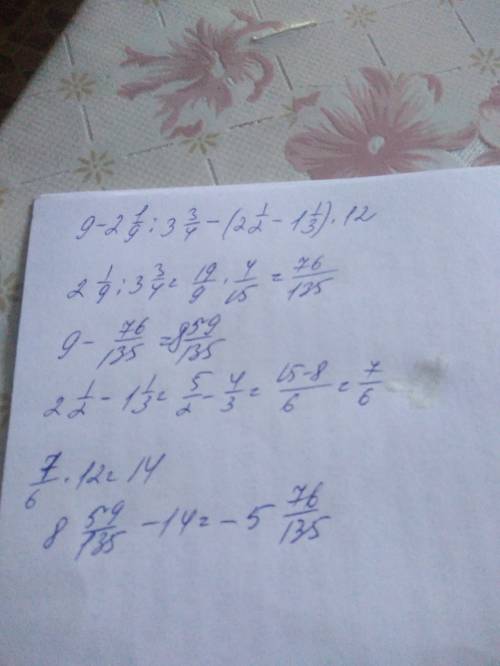 9 - 2 1/9 : 3 3/4 - (2 1/2 - 1 1/3) · 12
2 1/9 : 3 3/4 = 19/9 · 4/15 = 76/135
9 - 76/135 = 8 59/135
2 1/2 - 1 1/3 = 5/2 - 4/3 = 15-8/6 = 7/6
7/6 · 12 = 14
8 59/135 - 14 = - 5 76/135